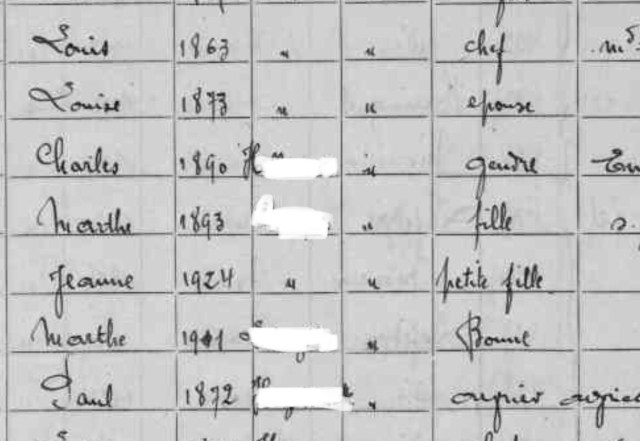 Louis 1863 " " chef
Louise 1873 " " epouse
Charles 1890 " " gendre
Marthe 1893 " fille
Jeanne 1924 " " petite fille
Marthe 1901 " Bonne
Paul 1872 " ouvrier